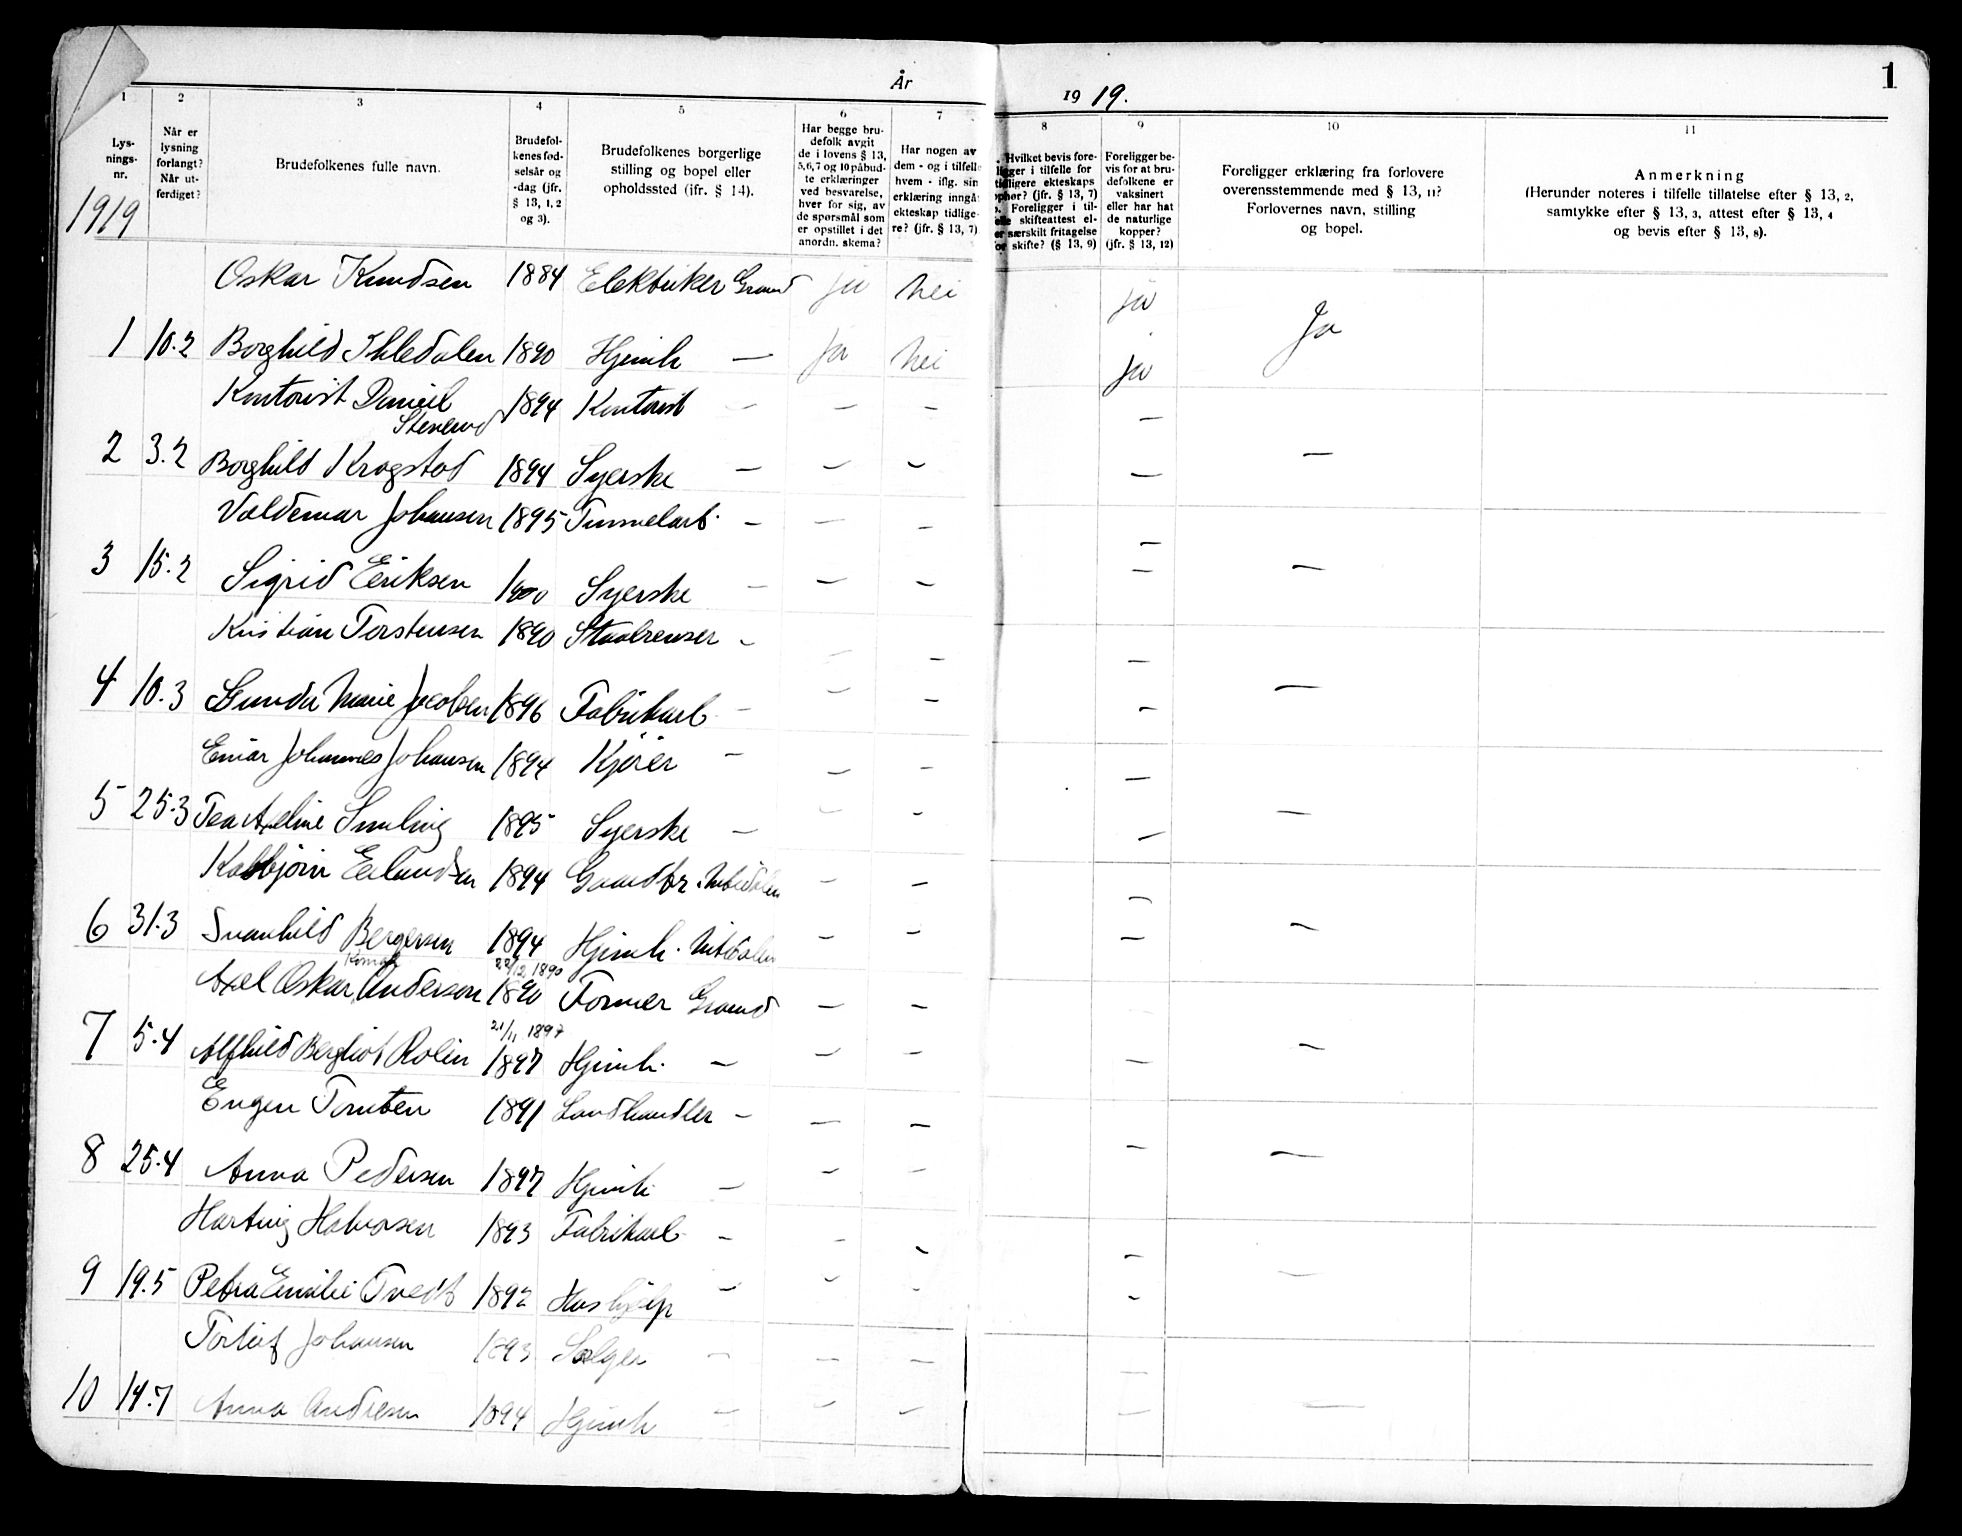 År 1919.
1
1 2 3 4 5 6 7 8 9 10 11
Lysningsnr.
Når er lysning forlangt? Når utferdiget?
Brudefolkenes fulle navn.
Brudefolkenes fødselsår og -dag (jfr. § 13, 1, 2 og 3).
Brudefolkenes borgerlige stilling og bopel eller opholdssted (ifr. § 14).
Har begge brudefolk avgit de i lovens § 13, 5, 6, 7 og 10 påbudte erklæringer ved besvarelse, hver for sig, av de spørsmål som er opstillet i det anordn. skema?
Har nogen av dem - og i tilfelle hvem - iflg. sin erklæring inngå ekteskap tidligere? (jfr. § 13, 7)
Hvilket bevis foreligger i tilfelle for tidligere ekteskaps ophør? (jfr. § 13, 7) Foreligger i tilfelle skifteattest eller særskilt fritagelse for skifte? (§ 13, 9)
Foreligger bevis for at brudefolkene er vaksinert eller har hat de naturlige kopper? (jfr. § 13, 12)
Foreligger erklæring fra forlovere overensstemmende med § 13, 11? Forlovernes navn, stilling og bopel.
Anmerkning
(Herunder noteres i tilfelle tillatelse efter § 13, 2, samtykke efter § 13, 3, attest efter § 13, 4 og bevis efter § 13, 8).
1919
Oskar Knudsen 1884 Elektriker Grand ja nei ja
1 10.2 Borghild Ihledalen 1890 Hjemh — ja nei ja Ja
Kontorist Daniel Stenerud 1894 Kontorist — — — —
2 3.2 Borghild Krogstad 1894 Syerske — — — — —
Valdemar Johansen 1895 Tunnelarb. — — — —
3 15.2 Sigrid Eriksen 1900 Syerske — — — — —
Kristian Torstensen 1890 Staalrenser — — — —
4 10.3 Gunda Marie Jacobsen 1896 Fabrikarb. — — — — —
Einar Johannes Johansen 1894 Kjører — — — —
5 25.3 Tea Axeline Smeling 1895 Syerske — — — — —
Kolbjørn Erlandsen 1894 Gaardbr. — — —
6 31.3 Svanhild Bergersen 1894 Hjemh. — — — —
Axel Oskar Konrad Anderson 22/12 1890 1890 Former Grand — —
7 5.4 Alfhild Bergliot Rolin 21/11 1897 1897 Hjemh. — — — — —
Eugen Tomten 1891 Landhandler — — —
8 25.4 Anna Pedersen 1897 Hjemh — — — — —
Hartvig Halvorsen 1893 Fabrikarb — — — —
9 19.5 Petra Emilie Tvedt 1892 Hushjelp — — — — —
Torleif Johansen 1893 Selger — — — —
10 14.7 Anna Andresen 1894 Hjemh — — — — —